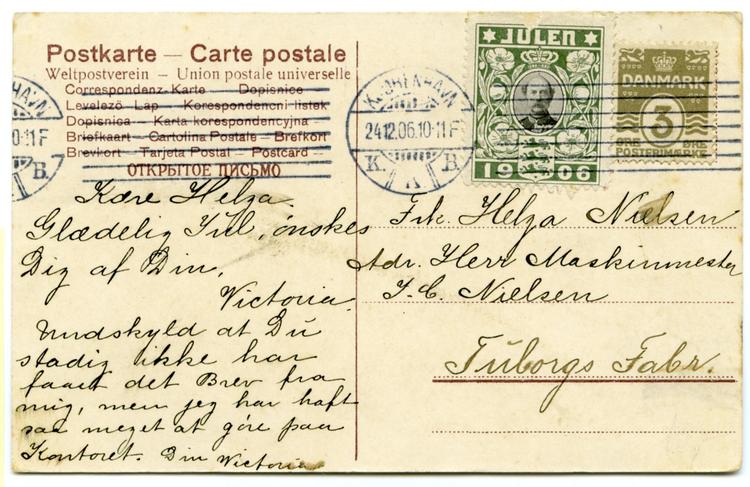 Postkarte — Carte postale
Weltpostverein — Union postale universelle
Correspondenz-Karte — Dopisnice
Levelező-Lap — Korespondencni listek
Dopisnica — Karta korespondencyjna —
Briefkaart — Cartolina Postale — Brefkort
Brevkort — Tarjeta Postal — Postcard —
ОТКРЫТОЕ ПИСЬМО
HAVN
0-11F
B.
KJØBENHAVN
24.12.06.10-11F
K. B.
JULEN
1906
DANMARK
3
ØRE ØRE
POSTFRIMÆRKE
Kære Helga.
Glædelig Jul, ønskes
Dig af Din,
Victoria.
Undskyld at Du
stadig ikke har
faaet det Brev fra
mig, men jeg har haft
saa meget at göre paa
Kontoret. Din Victoria
Frk. Helga Nielsen
Adr. Herr Maskinmester
J. C. Nielsen
Tuborgs Fabr.